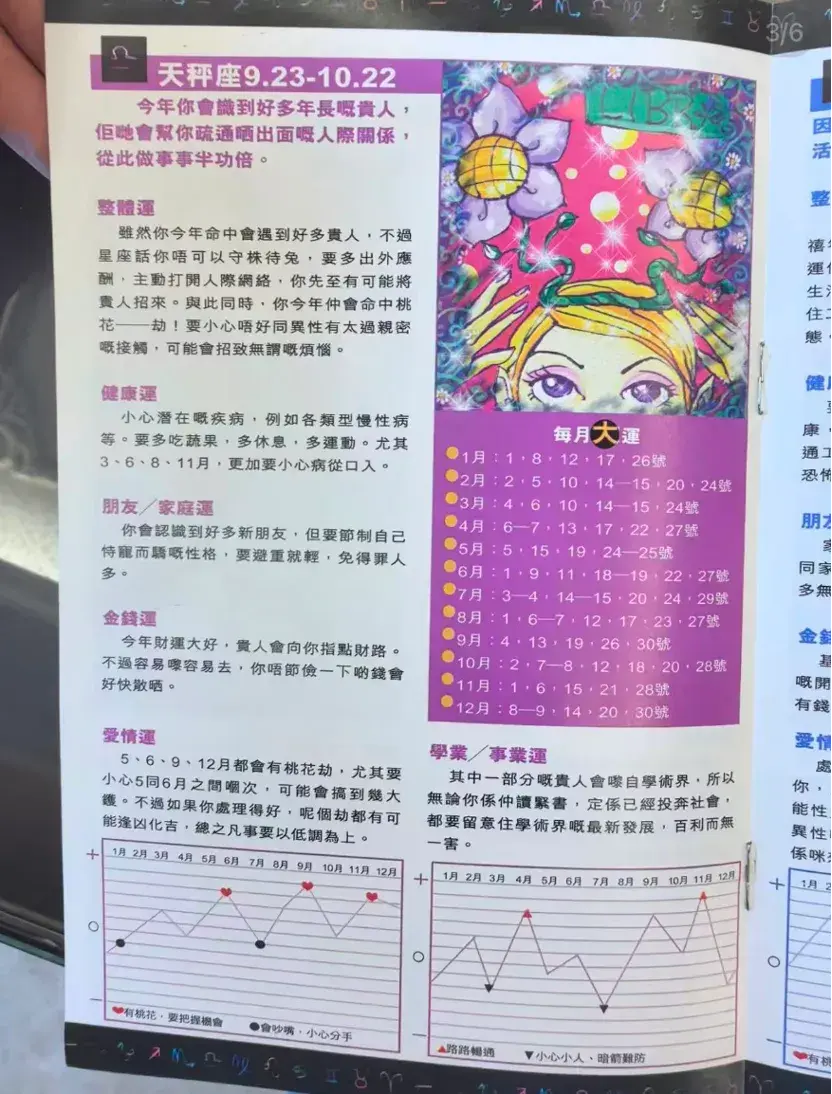 3/6
天秤座9.23-10.22
今年你會識到好多年長嘅貴人，
佢哋會幫你疏通晒出面嘅人際關係，
從此做事事半功倍。
整體運
雖然你今年命中會遇到好多貴人，不過
星座話你唔可以守株待兔，要多出外應
酬，主動打開人際網絡，你先至有可能將
貴人招來。與此同時，你今年仲會命中桃
花——劫！要小心唔好同異性有太過親密
嘅接觸，可能會招致無謂嘅煩惱。
健康運
小心潛在嘅疾病，例如各類型慢性病
等。要多吃蔬果，多休息，多運動。尤其
3、6、8、11月，更加要小心病從口入。
朋友／家庭運
你會認識到好多新朋友，但要節制自己
恃寵而驕嘅性格，要避重就輕，免得罪人
多。
金錢運
今年財運大好，貴人會向你指點財路。
不過容易嚟容易去，你唔節儉一下啲錢會
好快散晒。
愛情運
5、6、9、12月都會有桃花劫，尤其要
小心5同6月之間嗰次，可能會搞到幾大
鑊。不過如果你處理得好，呢個劫都有可
能逢凶化吉，總之凡事要以低調為上。
1月 2月 3月 4月 5月 6月 7月 8月 9月 10月 11月 12月
+
○
−
❤有桃花，要把握機會 ●會吵嘴，小心分手
LIBRA
每月大運
1月：1，8，12，17，26號
2月：2，5，10，14—15，20，24號
3月：4，6，10，14—15，24號
4月：6—7，13，17，22，27號
5月：5，15，19，24—25號
6月：1，9，11，18—19，22，27號
7月：3—4，14—15，20，24，29號
8月：1，6—7，12，17，23，27號
9月：4，13，19，26，30號
10月：2，7—8，12，18，20，28號
11月：1，6，15，21，28號
12月：8—9，14，20，30號
學業／事業運
其中一部分嘅貴人會嚟自學術界，所以
無論你係仲讀緊書，定係已經投奔社會，
都要留意住學術界嘅最新發展，百利而無
一害。
1月 2月 3月 4月 5月 6月 7月 8月 9月 10月 11月 12月
+
○
−
▲路路暢通 ▼小心小人、暗箭難防
因
活
整
禧
運
生
住
態
健
康，
通
恐怖
朋友
同家
多無
金錢
嘅開
有錢
愛情
處
你，
能性
異性
係咪
+
1月
○
−
❤有桃